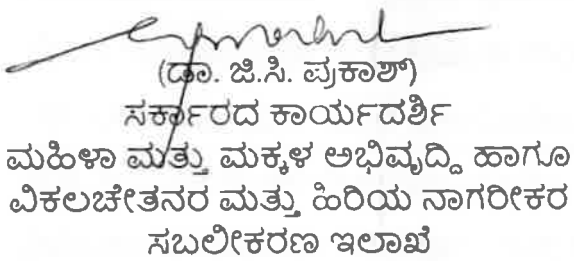 (ಡಾ. ಜಿ.ಸಿ. ಪ್ರಕಾಶ್)
ಸರ್ಕಾರದ ಕಾರ್ಯದರ್ಶಿ
ಮಹಿಳಾ ಮತ್ತು ಮಕ್ಕಳ ಅಭಿವೃದ್ದಿ ಹಾಗೂ
ವಿಕಲಚೇತನರ ಮತ್ತು ಹಿರಿಯ ನಾಗರೀಕರ
ಸಬಲೀಕರಣ ಇಲಾಖೆ